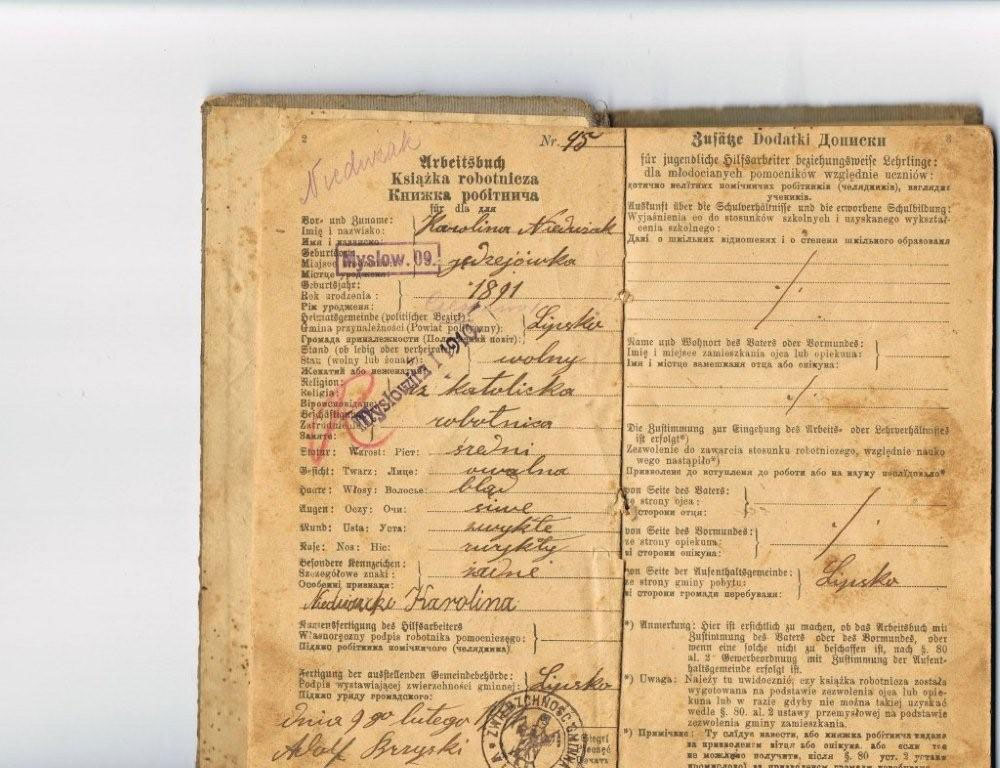 2
Nr. 95
Arbeitsbuch
Książka robotnicza
Книжка робітнича
für dla для
Vor- und Zuname:
Imię i nazwisko: Karolina
Имя і
Mysłow. 09.
Miejsce
Містце Jędrzejówka
Geburtsjahr:
Rok urodzenia : 1891
Рік уродженя:
Heimatsgemeinde (politischer Bezirk):
Gmina przynależności (Powiat polityczny): Lipsko
Громада приналежности
Stand (ob ledig oder verheiratet)
Stan (wolny lub żonaty): wolny
Жонатий або
Religion:
Religia: rz katolicka
Zatrudnienie robotnica
Занятє:
Statur: Wzrost: Ріст: średni
Gesicht: Twarz: Лице: owalna
Haare: Włosy: Волосьє: bląd
Augen: Oczy: Очи: siwe
Mund: Usta: Уста: zwykłe
Nase: Nos: Ніс: zwykły
Besondere Kennzeichen:
Szczegółowe znaki: żadne
Особенні признаки:
Karolina
Namensfertigung des Hilfsarbeiters
Własnoręczny podpis robotnika pomocniczego:
Підпис робітника помічничого (челядника)
Fertigung der ausstellenden Gemeindebehörde:
Podpis wystawiającej zwierzchności gminnej: Lipsko
Підпис уряду громадского:
dnia 9go lutego
Adolf
ZWIERZCHNOŚĆ GMINNA
Zusätze Dodatki Дописки
für jugendliche Hilfsarbeiter beziehungsweise Lehrlinge:
dla młodocianych pomocników względnie uczniów:
дотично нелітних помічничих робітників (челядників), взглядно
учеників.
Auskunft über die Schulverhältnisse und die erworbene Schulbildung:
Wyjaśnienia co do stosunków szkolnych i uzyskanego wykształ-
cenia szkolnego:
Дані о шкільних відношенях і о степени шкільного образованя
Name und Wohnort des Vaters oder Vormundes:
Imię i miejsce zamieszkania ojca lub opiekuna:
Імя і містце замешканя отца або опікуна:
Die Zustimmung zur Eingehung des Arbeits- oder Lehrverhältnisses
ist erfolgt*)
Zezwolenie do zawarcia stosunku robotniczego, względnie nauko-
wego nastąpiło*)
Призволенє до вступленя до роботи або на науку послїдовало*
von Seite des Vaters:
ze strony ojca:
зі сторони отця:
von Seite des Vormundes:
ze strony opiekuna:
зі сторони опікуна:
von Seite der Aufenthaltsgemeinde:
ze strony gminy pobytu: Lipsko
зі сторони громади перебуваня:
*) Anmerkung: Hier ist ersichtlich zu machen, ob das Arbeitsbuch mit
Zustimmung des Vaters oder des Vormundes, oder
wenn eine solche nicht zu beschaffen ist, nach §. 80
al. 2 Gewerbeordnung mit Zustimmung der Aufent-
haltsgemeinde erfolgt ist.
*) Uwaga: Należy tu uwidocznić, czy książka robotnicza została
wygotowana na podstawie zezwolenia ojca lub opie-
kuna lub w razie gdyby nie można takiej uzyskać
wedle §. 80. al. 2 ustawy przemysłowej na podstawie
zezwolenia gminy zamieszkania.
*) Примічанє: Ту слїдує навести, або книжка робітнича видана
за призволенєм вітця або опікуна, або если тоє
не можливо получити, після §. 80 уст. 2 устави